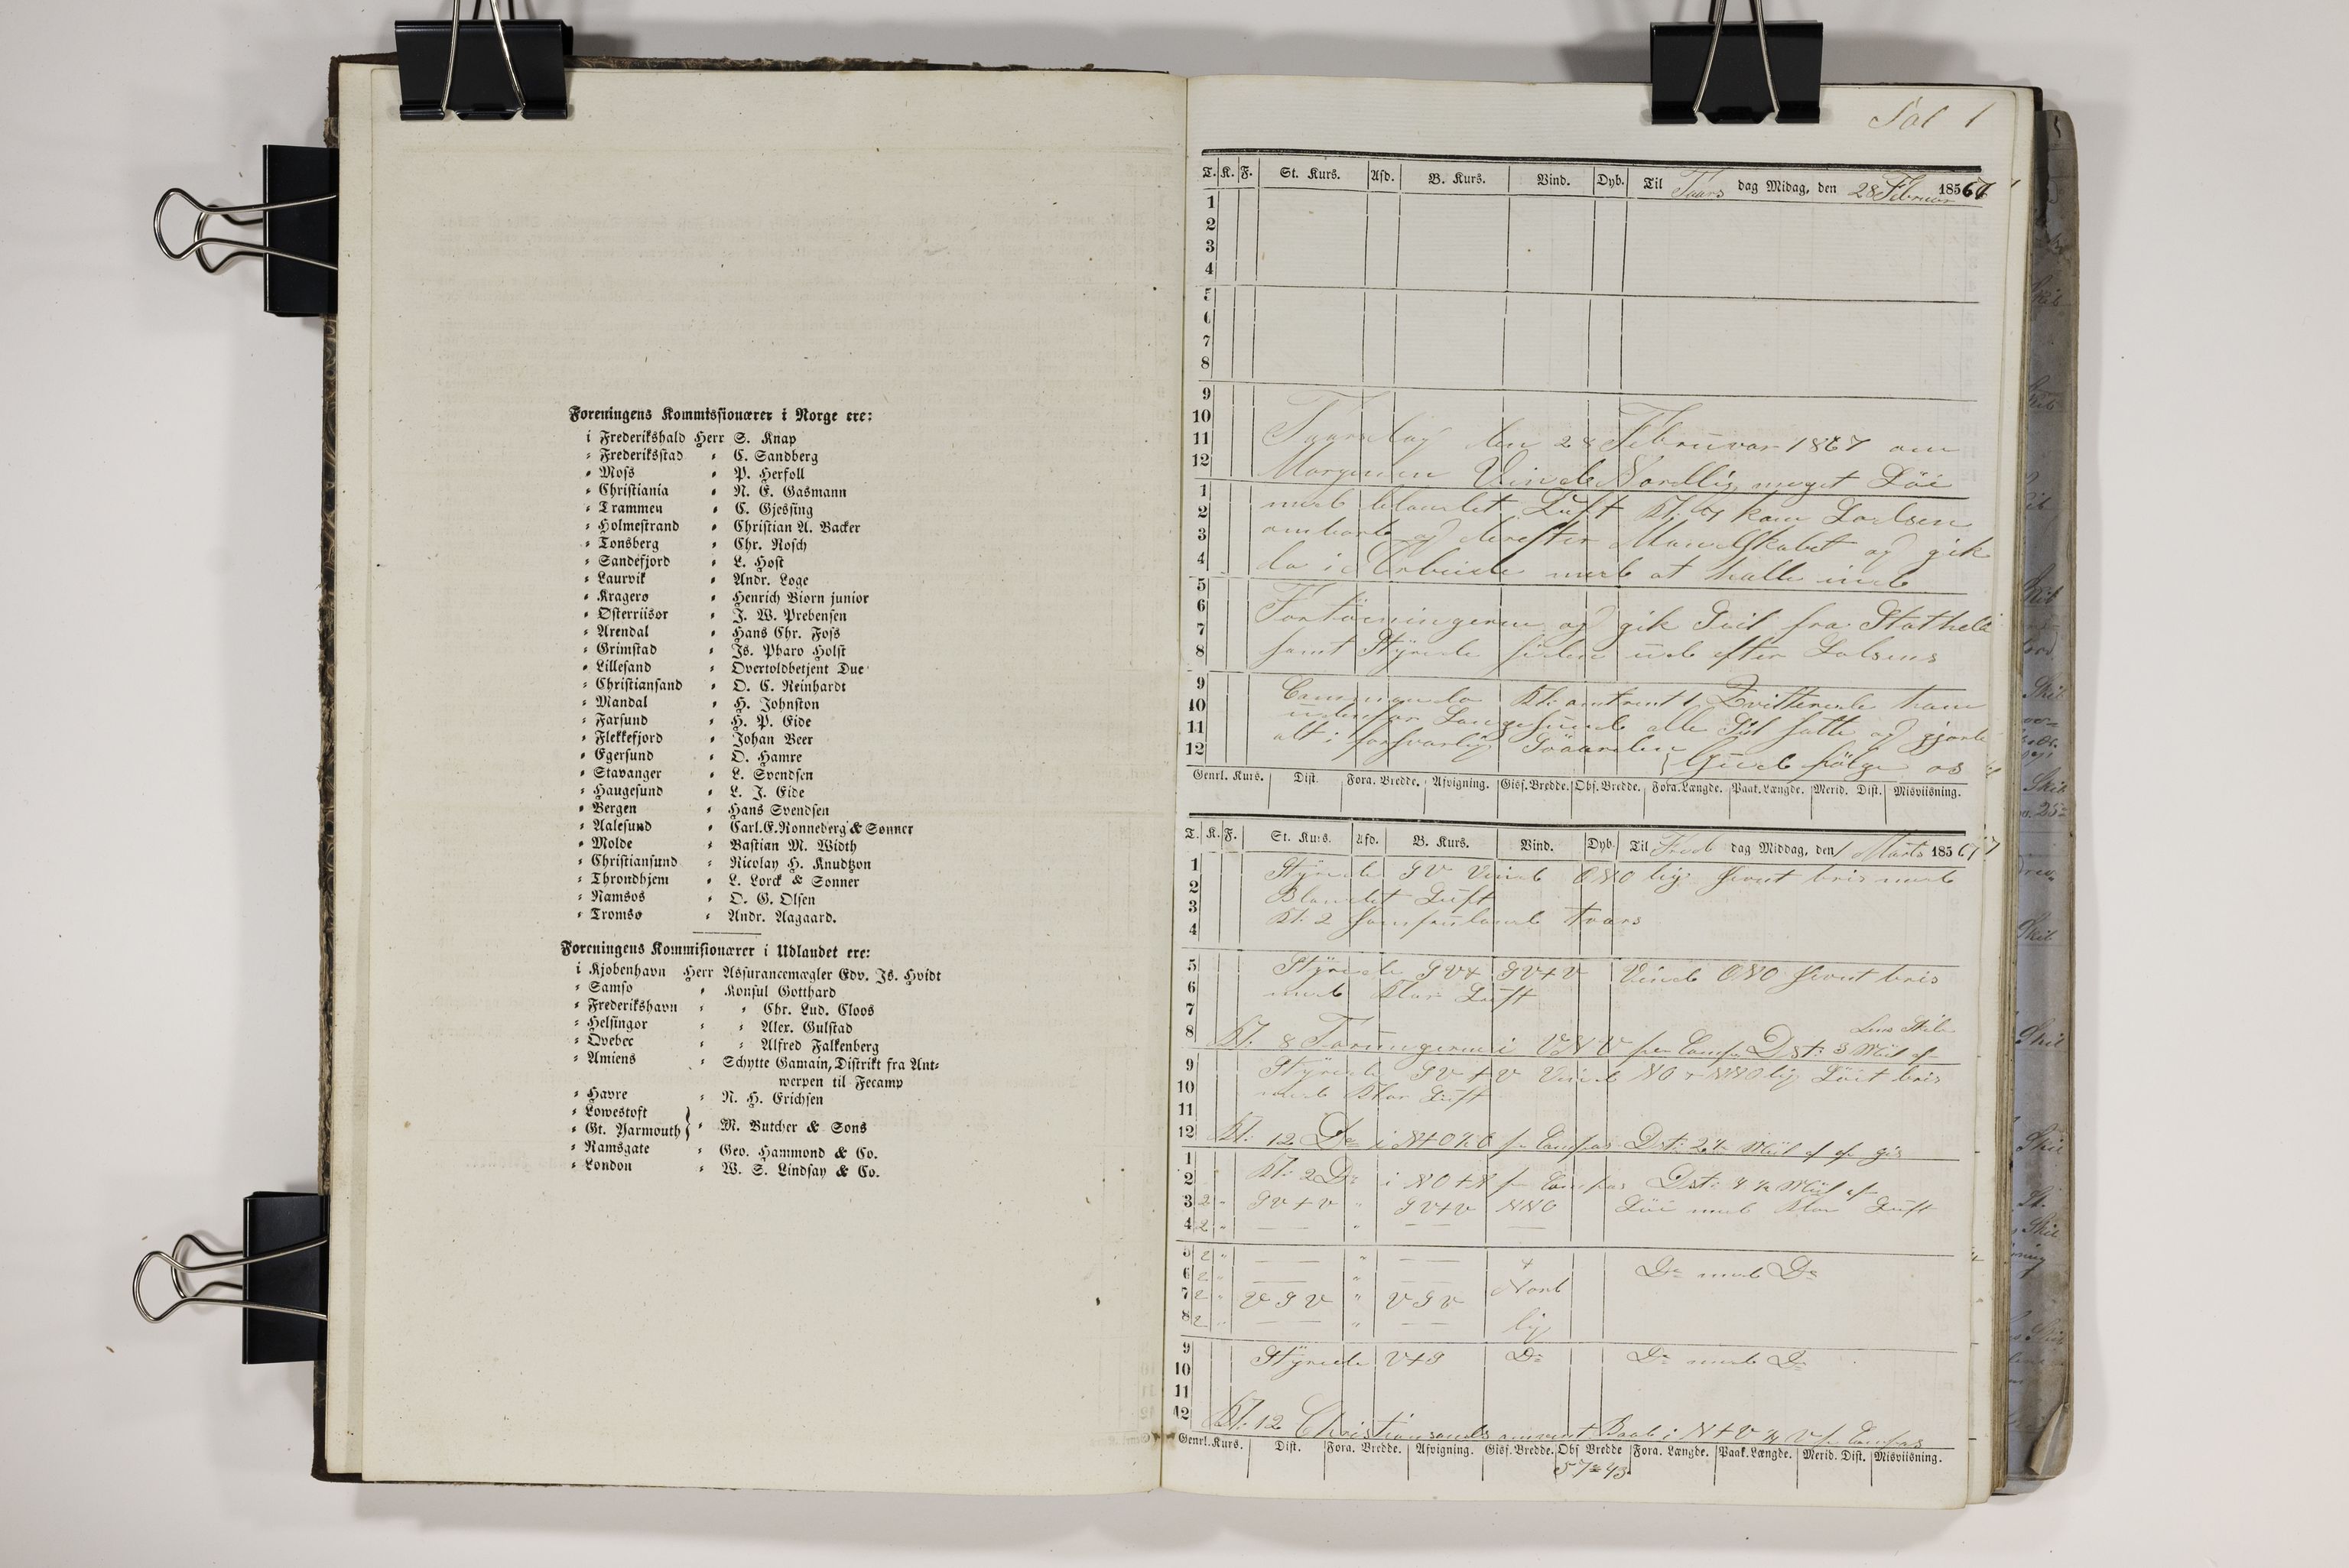 Foreningens Kommissionærer i Norge ere:
i Frederikshald Herr S. Knap
" Frederiksstad " C. Sandberg
" Moss " P. Herfoll
" Christiania " N. E. Gasmann
" Trammen " C. Gjessing
" Holmestrand " Christian A. Backer
" Tonsberg " Chr. Rosch
" Sandefjord " L. Host
" Laurvik " Andr. Loge
" Kragero " Henrich Biorn junior
" Osterriisor " J. W. Prebensen
" Arendal " Hans Chr. Foss
" Grimstad " Js. Pharo Holst
" Lillesand " Overtoldbetjent Due
" Christiansand " O. C. Reinhardt
" Mandal " H. Johnston
" Farsund " H. P. Eide
" Flekkefjord " Johan Beer
" Egersund " O. Hamre
" Stavanger " L. Svendsen
" Haugesund " L. J. Eide
" Bergen " Hans Svendsen
" Aalesund " Carl. E. Ronneberg & Sonner
" Molde " Bastian M. Width
" Christiansund " Nicolay H. Knudtzon
" Throndhjem " L. Lorck & Sonner
" Namsos " O. G. Olsen
" Tromso " Andr. Aagaard.
Foreningens Kommisionærer i Udlandet ere:
i Kjobenhavn Herr Assurancemægler Edv. Js. Hvidt
" Samso " Konsul Gotthard
" Frederikshavn " " Chr. Lud. Cloos
" Helsingor " " Alex. Gulstad
" Qvebec " " Alfred Falkenberg
" Amiens " Schytte Gamain, Distrikt fra Ant-
werpen til Fecamp
" Havre " N. H. Erichsen
" Lowestoft
" Gt. Yarmouth } " M. Butcher & Sons
" Ramsgate " Geo. Hammond & Co.
" London " W. S. Lindsay & Co.
Fol 1
T. K. F. St. Kurs. Afd. B. Kurs. Vind. Dyb. Til Taars dag Midag, den 28 Februar 1867
1
2
3
4
5
6
7
8
9
10
11 Taarsdag den 28 Februvar 1867 om
12 Morgenen Vinde Nordlig meget Löi
1
2 med blandet Luft Kl: kom Lodsen
3 ombord og derefter Mandskabet og gik
4 da i Arbeide med at halle ind
5
6 Fortöiningerne og gik Seil fra Stathelle
7
8 samt Styrede siden ud efter Lodsens
9
10 Commando Kl: omtrent 1 Qvitterede ham
11 udenfor Langesund alle Seil satte og gjorde
12 alt i forsvarlig Söstanden Gud fölge os
Genrl. Kurs. Dist. Fora. Bredde. Afvigning. Giss. Bredde. Obs. Bredde. Fora. Længde. Paak. Længde. Merid. Dist. Misviisning.
T. K. F. St. Kurs. Afd. B. Kurs. Vind. Dyb. Til Fred dag Middag, den 1 Marts 1867
1 Styrede SV Vind ONO lig bris med
2 Blandet Luft
3 Kl: 2 Jomfruland tværs
4
5 Styrede SV+V Vind ONO bris
6 med Klar Luft
7
8 Kl: 8 Toringerne i VNV pr Comps Dst: 3 Miil af
9 Styrede SV+V Vind NO + NNO lig Löi bris
10 med Klar Luft
11
12 Kl: 12 Do i N+O pr Compas Dst: Miil af
1
2 Kl: 2 Do i NO+N pr Compas Dst: Miil af
3 2 " SV+V " SV+V NNO Löi med Klar Luft
4 2 " — — " — — —
5 2 " — — " — —
6 2 " — — " — — Do med Do
7 2 " VSV " VSV Nord
8 2 " — — " — — lig
9 Styrede V+S Do Do med Do
10
11
12 Kl: 12 Christiansands i N+V pr Compas
Genrl. Kurs. Dist. Fora. Bredde. Afvigning. Giss. Bredde. Obs Bredde Fora. Længde. Paak. Længde. Merid. Dist. Misviisning.
57° 43